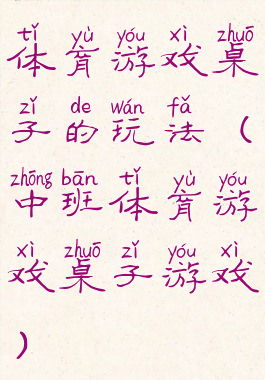 tǐ yù yóu xì zhuō
体育游戏桌
zǐ de wán fǎ
子的玩法（
zhōng bān tǐ yù yóu
中班体育游
xì zhuō zǐ yóu xì
戏桌子游戏
）